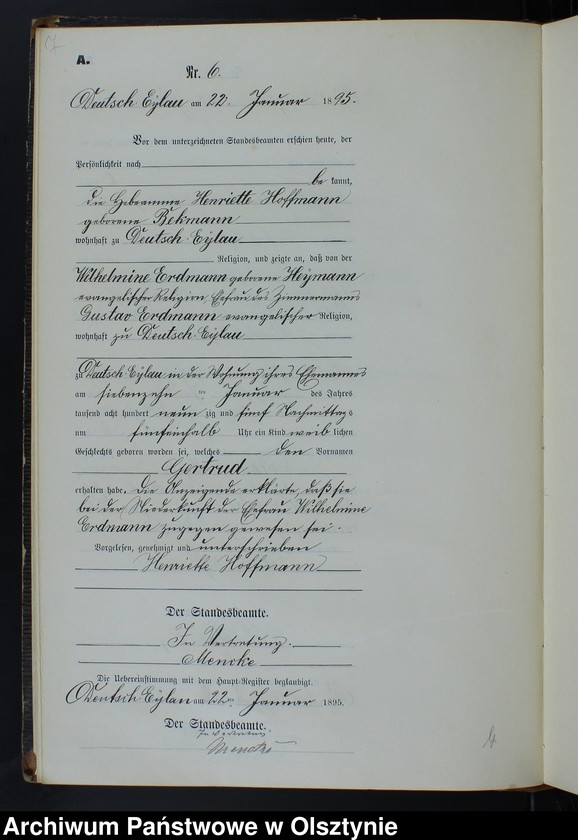 A.
Nr. 6.
Deutsch Eylau am 22. Januar 1895.
Vor dem unterzeichneten Standesbeamten erschien heute, der
Persönlichkeit nach
be kannt,
die Hebeamme Henriette Hoffmann
geborene Bekmann
wohnhaft zu Deutsch Eylau
Religion, und zeigte an, daß von der
Wilhelmine Erdmann geborene Heymann
evangelischer Religion, Ehefrau des Zimmermanns
Gustav Erdmann evangelischer Religion,
wohnhaft zu Deutsch Eylau
zu Deutsch Eylau in der Wohnung ihres Ehemannes
am siebenzehn ten Januar des Jahres
tausend acht hundert neun zig und fünf Nachmittags
um fünfeinhalb Uhr ein Kind weib lichen
Geschlechts geboren worden sei, welches den Vornamen
Gertrud
erhalten habe. Die Anzeigende erklärte, daß sie
bei der Niederkunft der Ehefrau Wilhelmine
Erdmann zugegen gewesen sei.
Vorgelesen, genehmigt und unterschrieben
Henriette Hoffmann
Der Standesbeamte.
In Vertretung.
Mencke
Die Uebereinstimmung mit dem Haupt-Register beglaubigt.
Deutsch Eylau am 22ten Januar 1895.
Der Standesbeamte.
In Vertretung.
Mencke
Archiwum Państwowe w Olsztynie